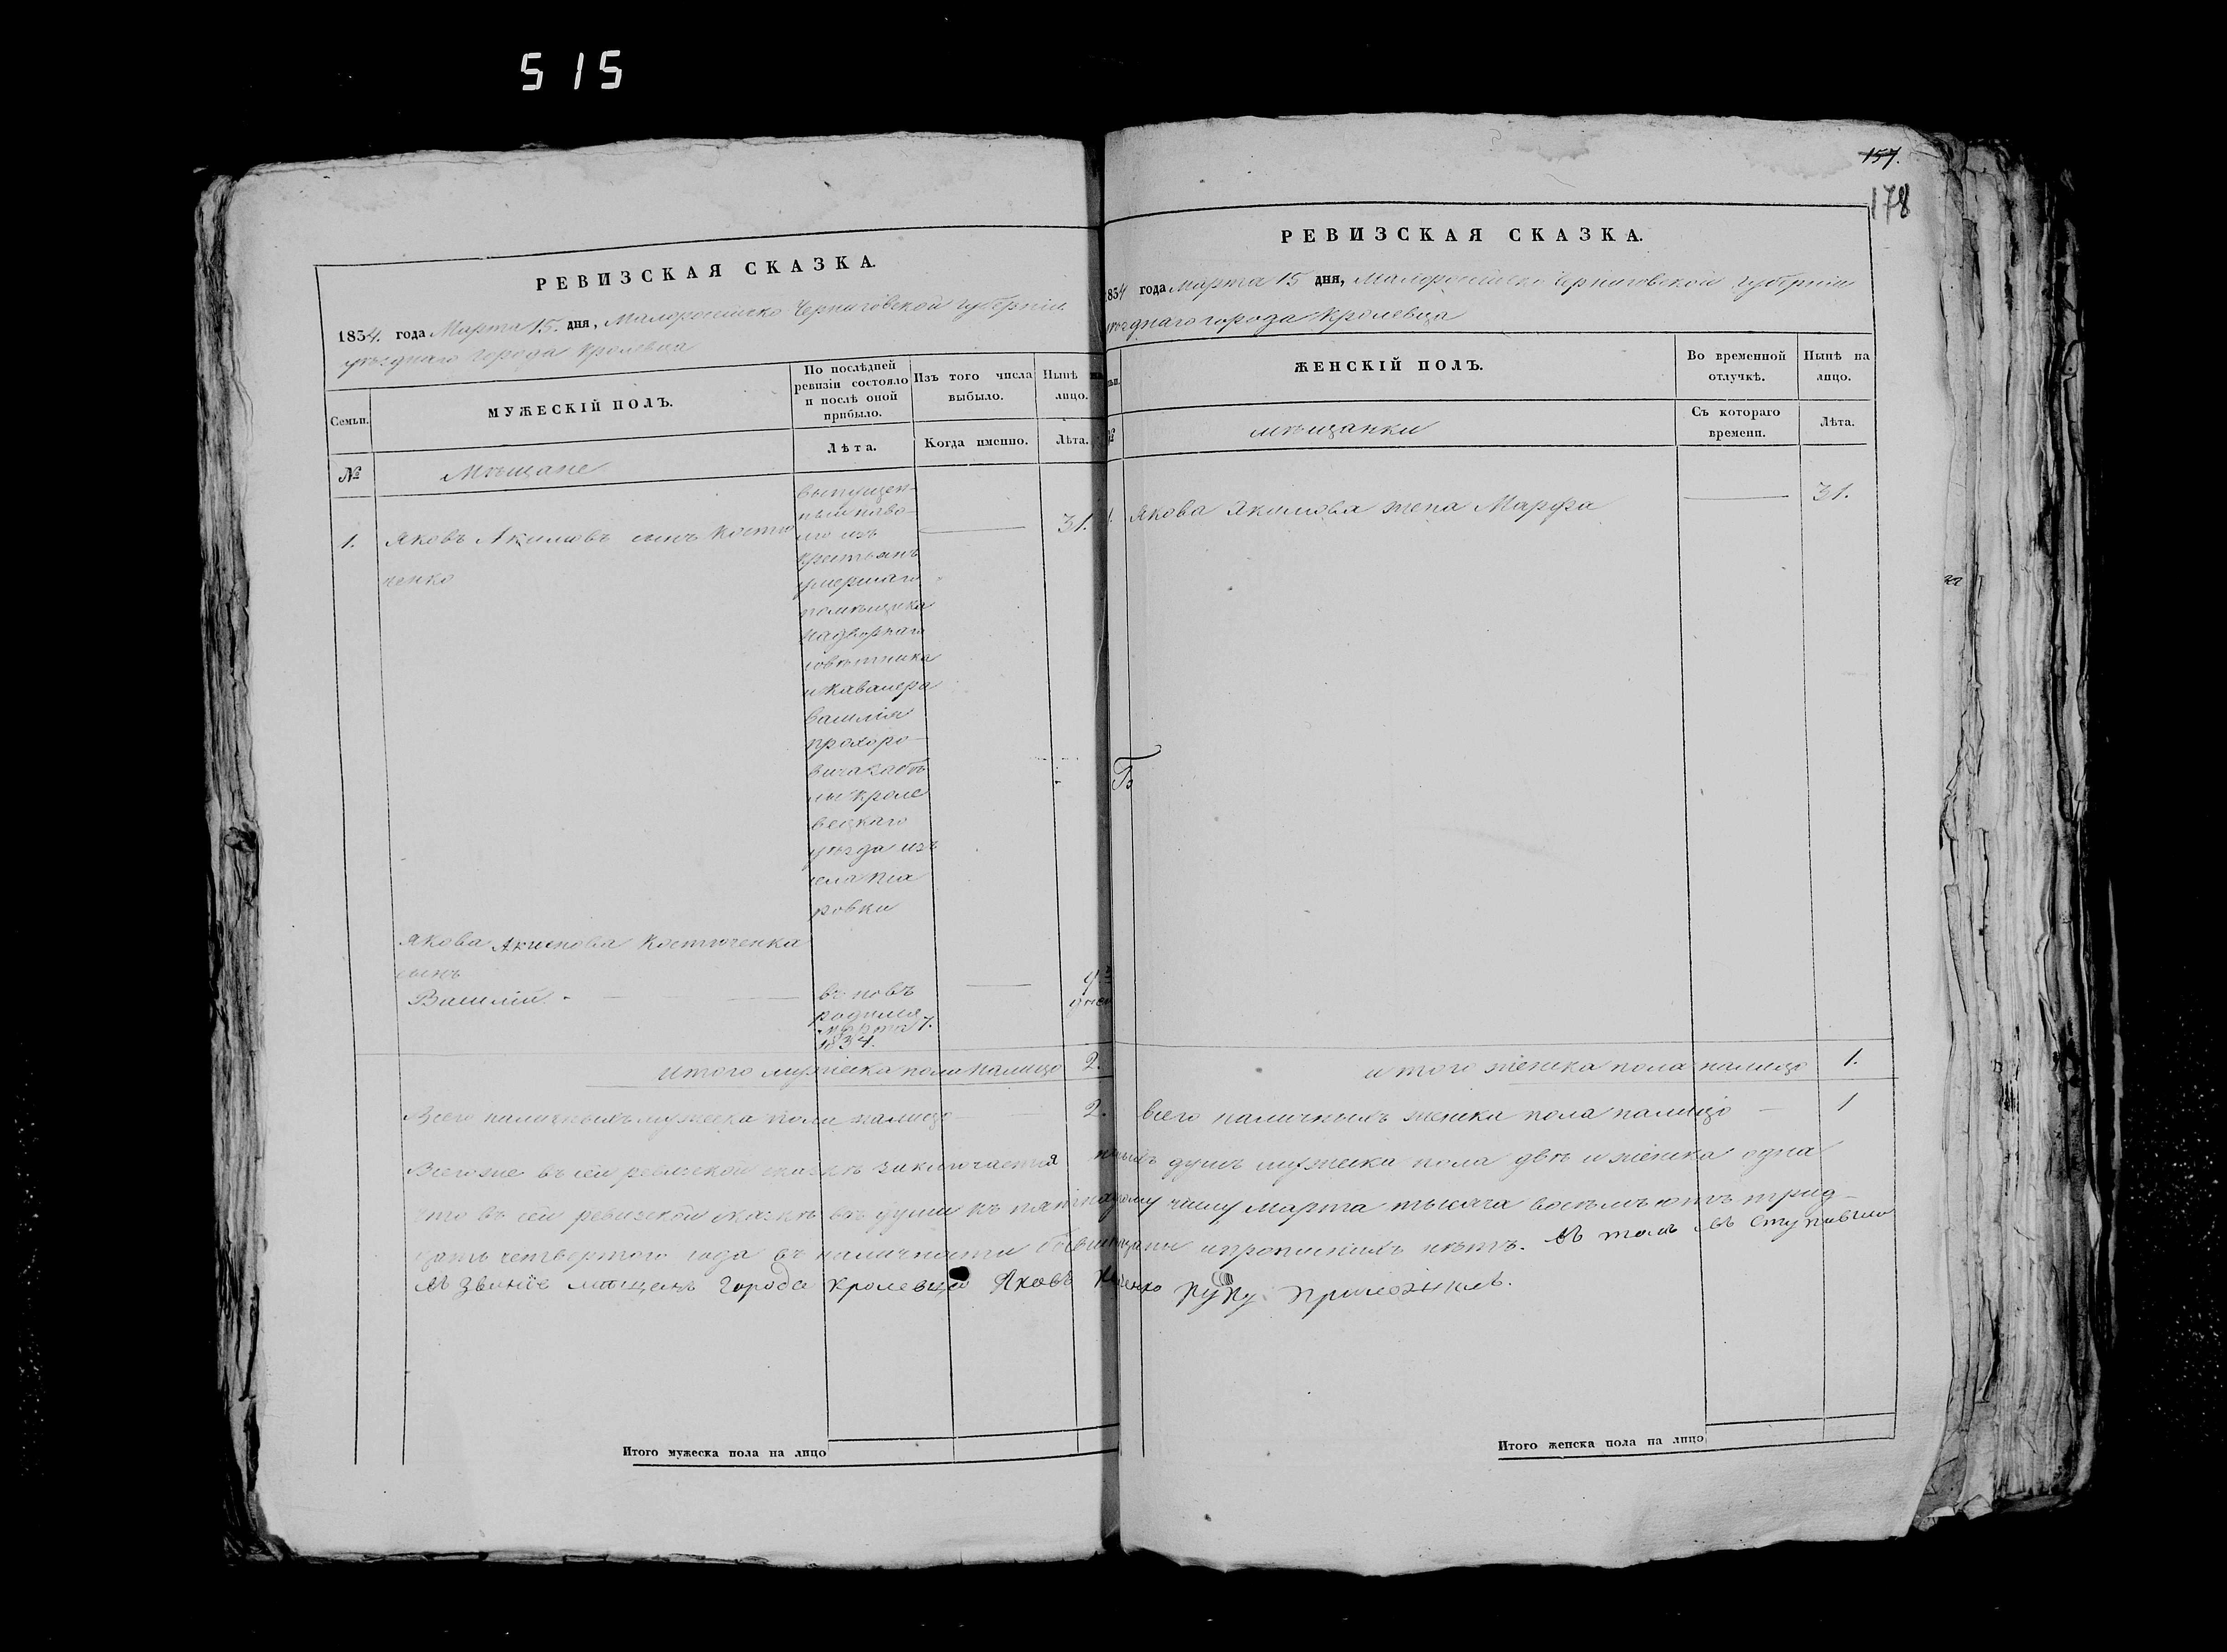 515
157.
178
РЕВИЗСКАЯ СКАЗКА.
1834. года Марта 15. дня, Малоросійско Черниговской губерніи
уѣзднаго города Кролевца
Семьи.
МУЖЕСКІЙ ПОЛЪ.
По послѣдней
ревизіи состояло
и послѣ оной
прибыло.
Изъ того числа
выбыло.
Нынѣ на
лицо.
Лѣта.
Когда именно.
Лѣта.
№
Мѣщане
1. Яковъ Акимовъ сынъ Костю
ченко
выпущен-
ный наво-
лю изъ
крестьянъ
умершаго
помѣщика
надворнаго
совѣтника
и Кавалера
Василія
Прохоро-
вича
Кроле
вецкаго
уѣзда изъ
села
ровки
31.
Якова Акимова Костюченка
сынъ
Василій
въ новъ
родился
марта 7.
1834.
дней
итого мужеска пола налицо 2.
Всего наличныхъ мужеска пола налицо 2.
РЕВИЗСКАЯ СКАЗКА.
1834 года Марта 15 дня, Малоросійско Черниговской губерніи
уѣзднаго города Кролевца
ЖЕНСКІЙ ПОЛЪ.
Во временной
отлучкѣ.
Нынѣ на
лицо.
Съ котораго
времени.
Лѣта.
мѣщанки
1. Якова Акимова жена Марфа 31.
итого женска пола налицо 1.
всего наличныхъ женска пола налицо 1
Всего же въ сей ревизской сказкѣ заключается душъ мужеска пола двѣ и женска одна
что въ сей ревизской сказкѣ всѣ души къ числу марта тысяча восемьсотъ трид-
цать четвертого года въ наличности и прописныхъ нѣтъ. Въ томъ въступившій
въ званіе мѣщанъ города Кролевца Яковъ руку приложилъ.
Итого мужеска пола на лицо
Итого женска пола на лицо